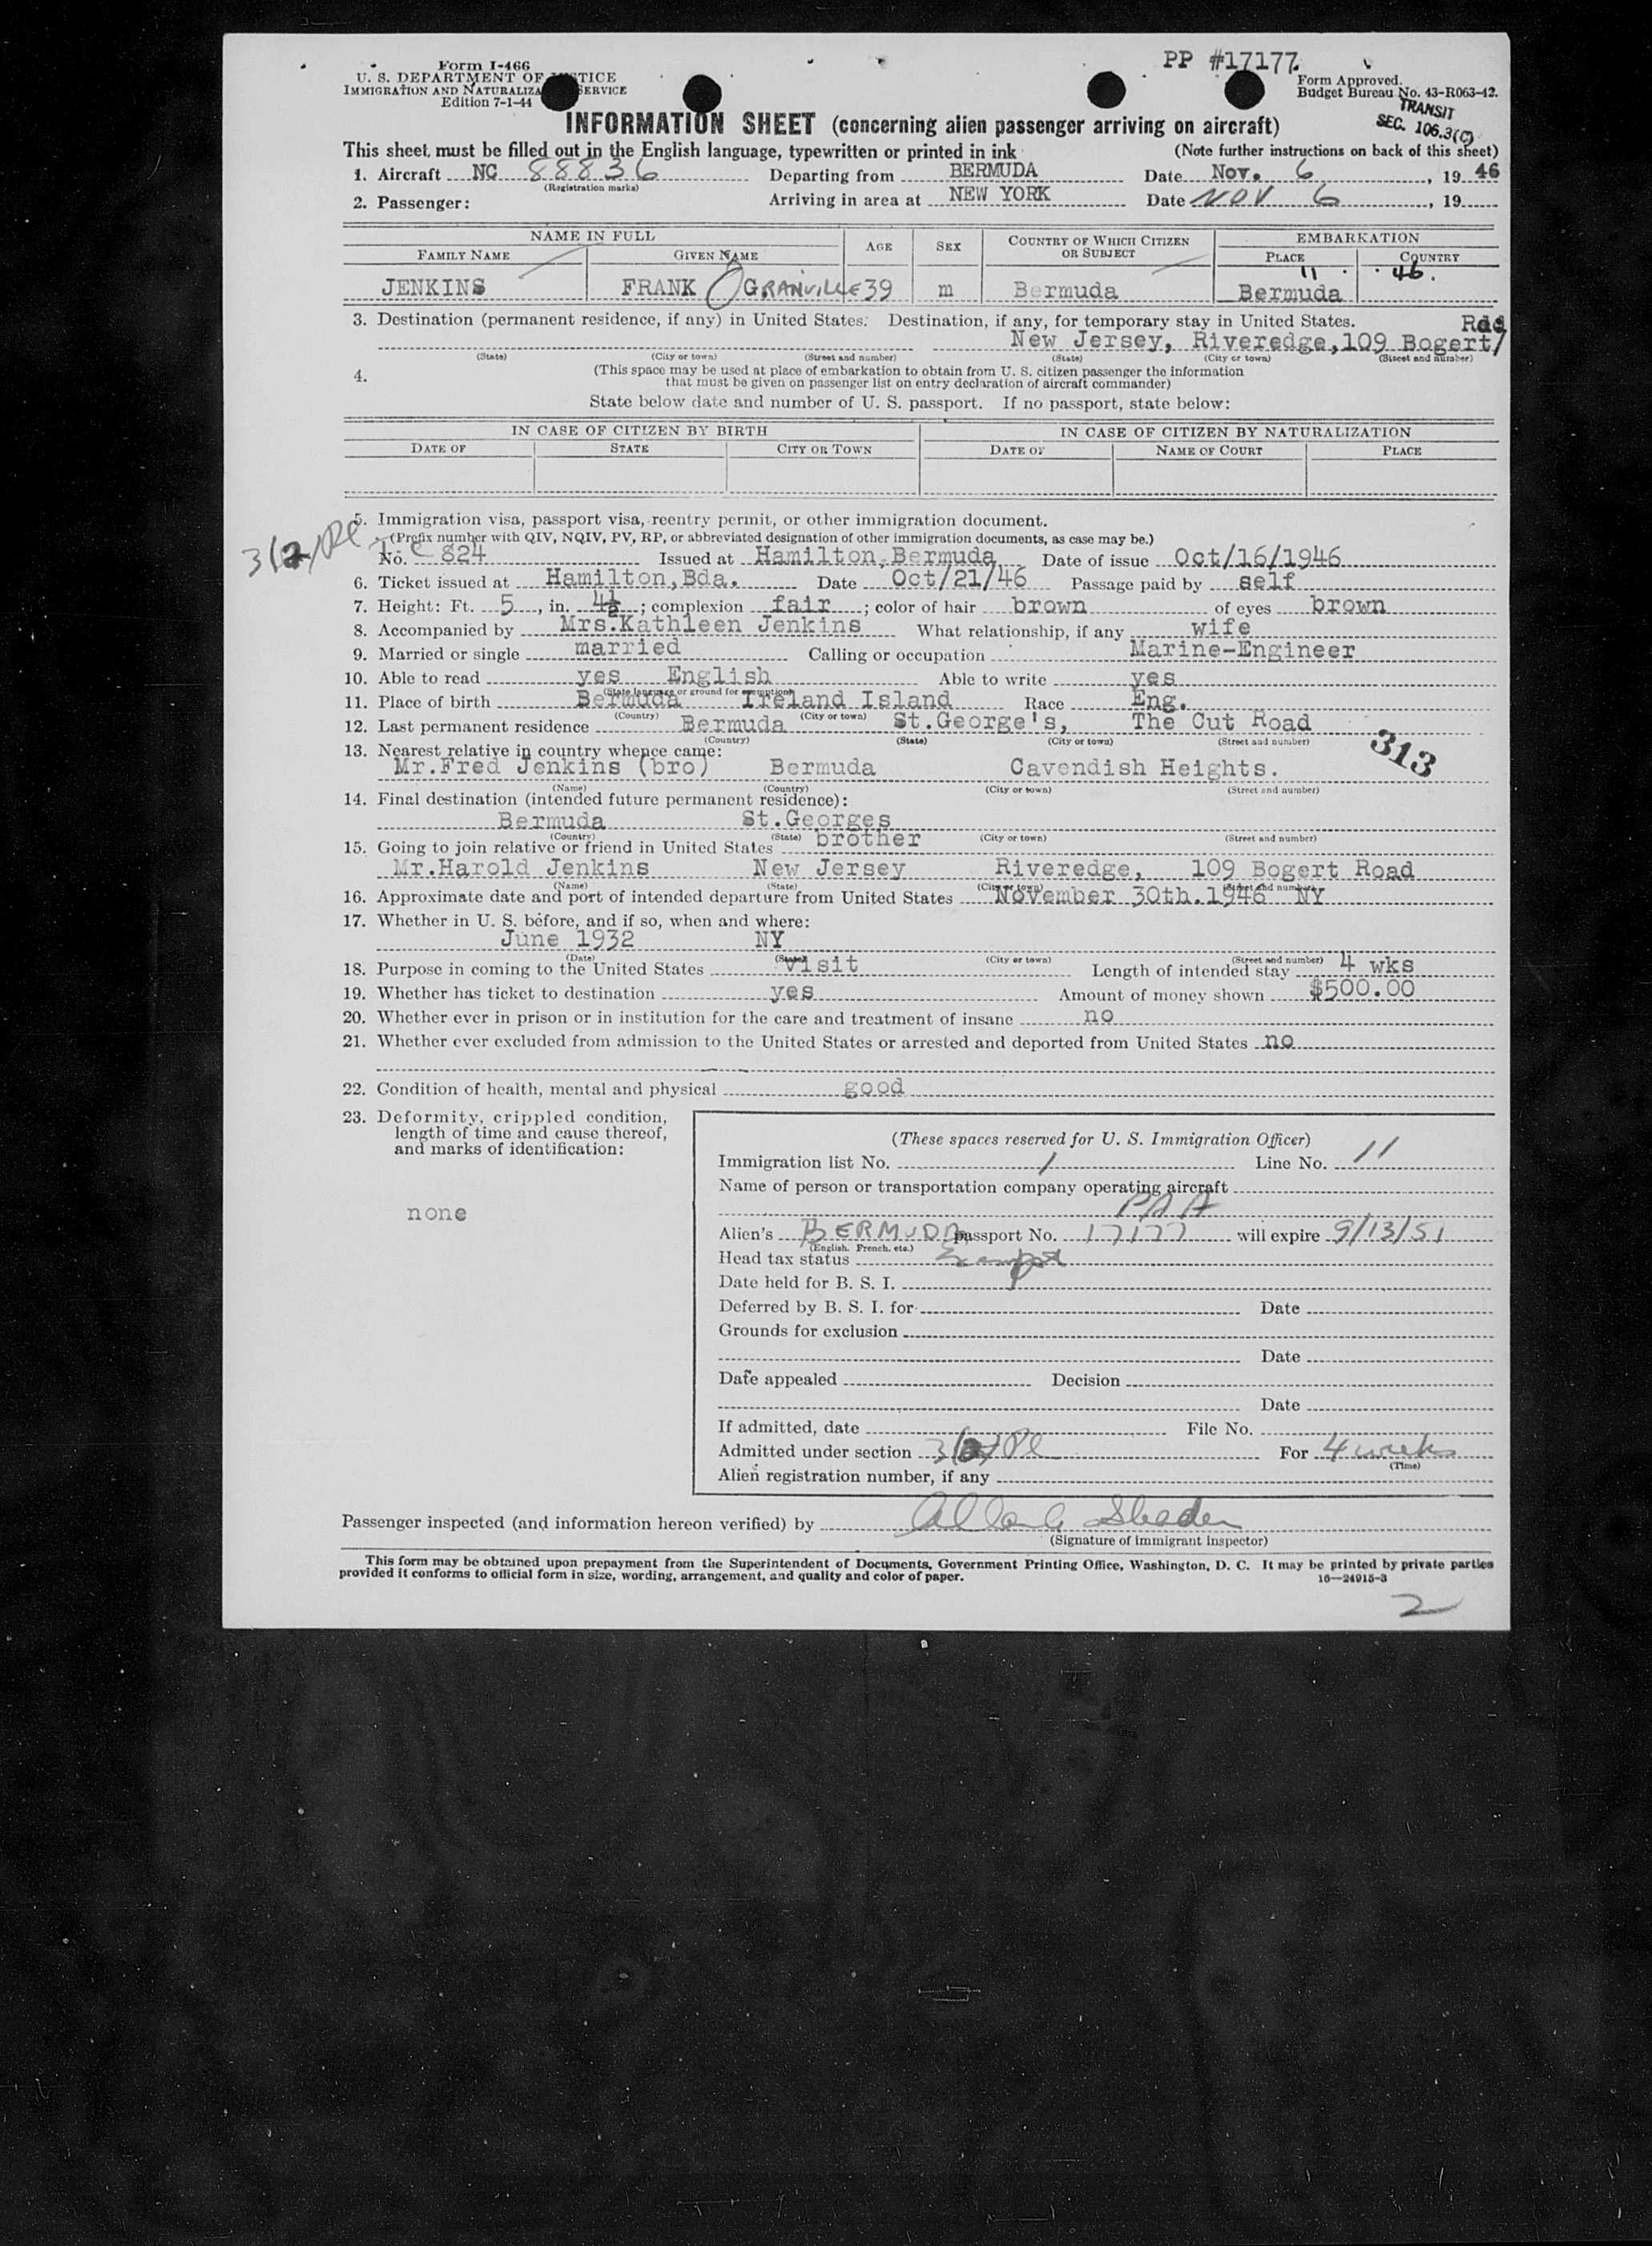 PP #17177.
Form I-466
U. S. DEPARTMENT OF JUSTICE
IMMIGRATION AND NATURALIZATION SERVICE
Edition 7-1-44
Form Approved.
Budget Bureau No. 43-R063-42.
TRANSIT
SEC. 106.3(C)
INFORMATION SHEET (concerning alien passenger arriving on aircraft)
This sheet must be filled out in the English language, typewritten or printed in ink (Note further instructions on back of this sheet)
1. Aircraft NC 88836 Departing from BERMUDA Date Nov. 6, 19 46
(Registration marks)
2. Passenger: Arriving in area at NEW YORK Date NOV 6, 19
NAME IN FULL AGE SEX COUNTRY OF WHICH CITIZEN OR SUBJECT EMBARKATION
FAMILY NAME GIVEN NAME PLACE COUNTRY
11 46.
JENKINS FRANK GRANVILLE 39 m Bermuda Bermuda
3. Destination (permanent residence, if any) in United States: Destination, if any, for temporary stay in United States. Rdd
New Jersey, Riveredge, 109 Bogert/
(State) (City or town) (Street and number) (State) (City or town) (Street and number)
4. (This space may be used at place of embarkation to obtain from U. S. citizen passenger the information
that must be given on passenger list on entry declaration of aircraft commander)
State below date and number of U. S. passport. If no passport, state below:
IN CASE OF CITIZEN BY BIRTH IN CASE OF CITIZEN BY NATURALIZATION
DATE OF STATE CITY OR TOWN DATE OF NAME OF COURT PLACE
5. Immigration visa, passport visa, reentry permit, or other immigration document.
3(2) Pl
(Prefix number with QIV, NQIV, PV, RP, or abbreviated designation of other immigration documents, as case may be.)
No. 824 Issued at Hamilton, Bermuda Date of issue Oct/16/1946
6. Ticket issued at Hamilton, Bda. Date Oct/21/46 Passage paid by self
7. Height: Ft. 5, in. 4½; complexion fair; color of hair brown of eyes brown
8. Accompanied by Mrs. Kathleen Jenkins What relationship, if any wife
9. Married or single married Calling or occupation Marine-Engineer
10. Able to read yes English Able to write yes
(State language or ground for exemption)
11. Place of birth Bermuda Ireland Island Race Eng.
(Country) (City or town)
12. Last permanent residence Bermuda St.George's, The Cut Road
(Country) (State) (City or town) (Street and number)
313
13. Nearest relative in country whence came:
Mr.Fred Jenkins (bro) Bermuda Cavendish Heights.
(Name) (Country) (City or town) (Street and number)
14. Final destination (intended future permanent residence):
Bermuda St.Georges
(Country) (State) (City or town) (Street and number)
15. Going to join relative or friend in United States brother
Mr.Harold Jenkins New Jersey Riveredge, 109 Bogert Road
(Name) (State) (City or town) (Street and number)
16. Approximate date and port of intended departure from United States November 30th. 1946 NY
17. Whether in U. S. before, and if so, when and where:
June 1932 NY
(Date) (State) (City or town) (Street and number)
18. Purpose in coming to the United States visit Length of intended stay 4 wks
19. Whether has ticket to destination yes Amount of money shown $500.00
20. Whether ever in prison or in institution for the care and treatment of insane no
21. Whether ever excluded from admission to the United States or arrested and deported from United States no
22. Condition of health, mental and physical good
23. Deformity, crippled condition,
length of time and cause thereof,
and marks of identification:
none
(These spaces reserved for U. S. Immigration Officer)
Immigration list No. 1 Line No. 11
Name of person or transportation company operating aircraft
PAA
Alien's BERMUDA passport No. 17177 will expire 9/13/51
(English, French, etc.)
Head tax status Exempt
Date held for B. S. I.
Deferred by B. S. I. for Date
Grounds for exclusion
Date
Date appealed Decision
Date
If admitted, date File No.
Admitted under section 3(2) Pl For 4 weeks
(Time)
Alien registration number, if any
Passenger inspected (and information hereon verified) by
(Signature of Immigrant Inspector)
This form may be obtained upon prepayment from the Superintendent of Documents, Government Printing Office, Washington, D. C. It may be printed by private parties
provided it conforms to official form in size, wording, arrangement, and quality and color of paper. 16—24915-3
2